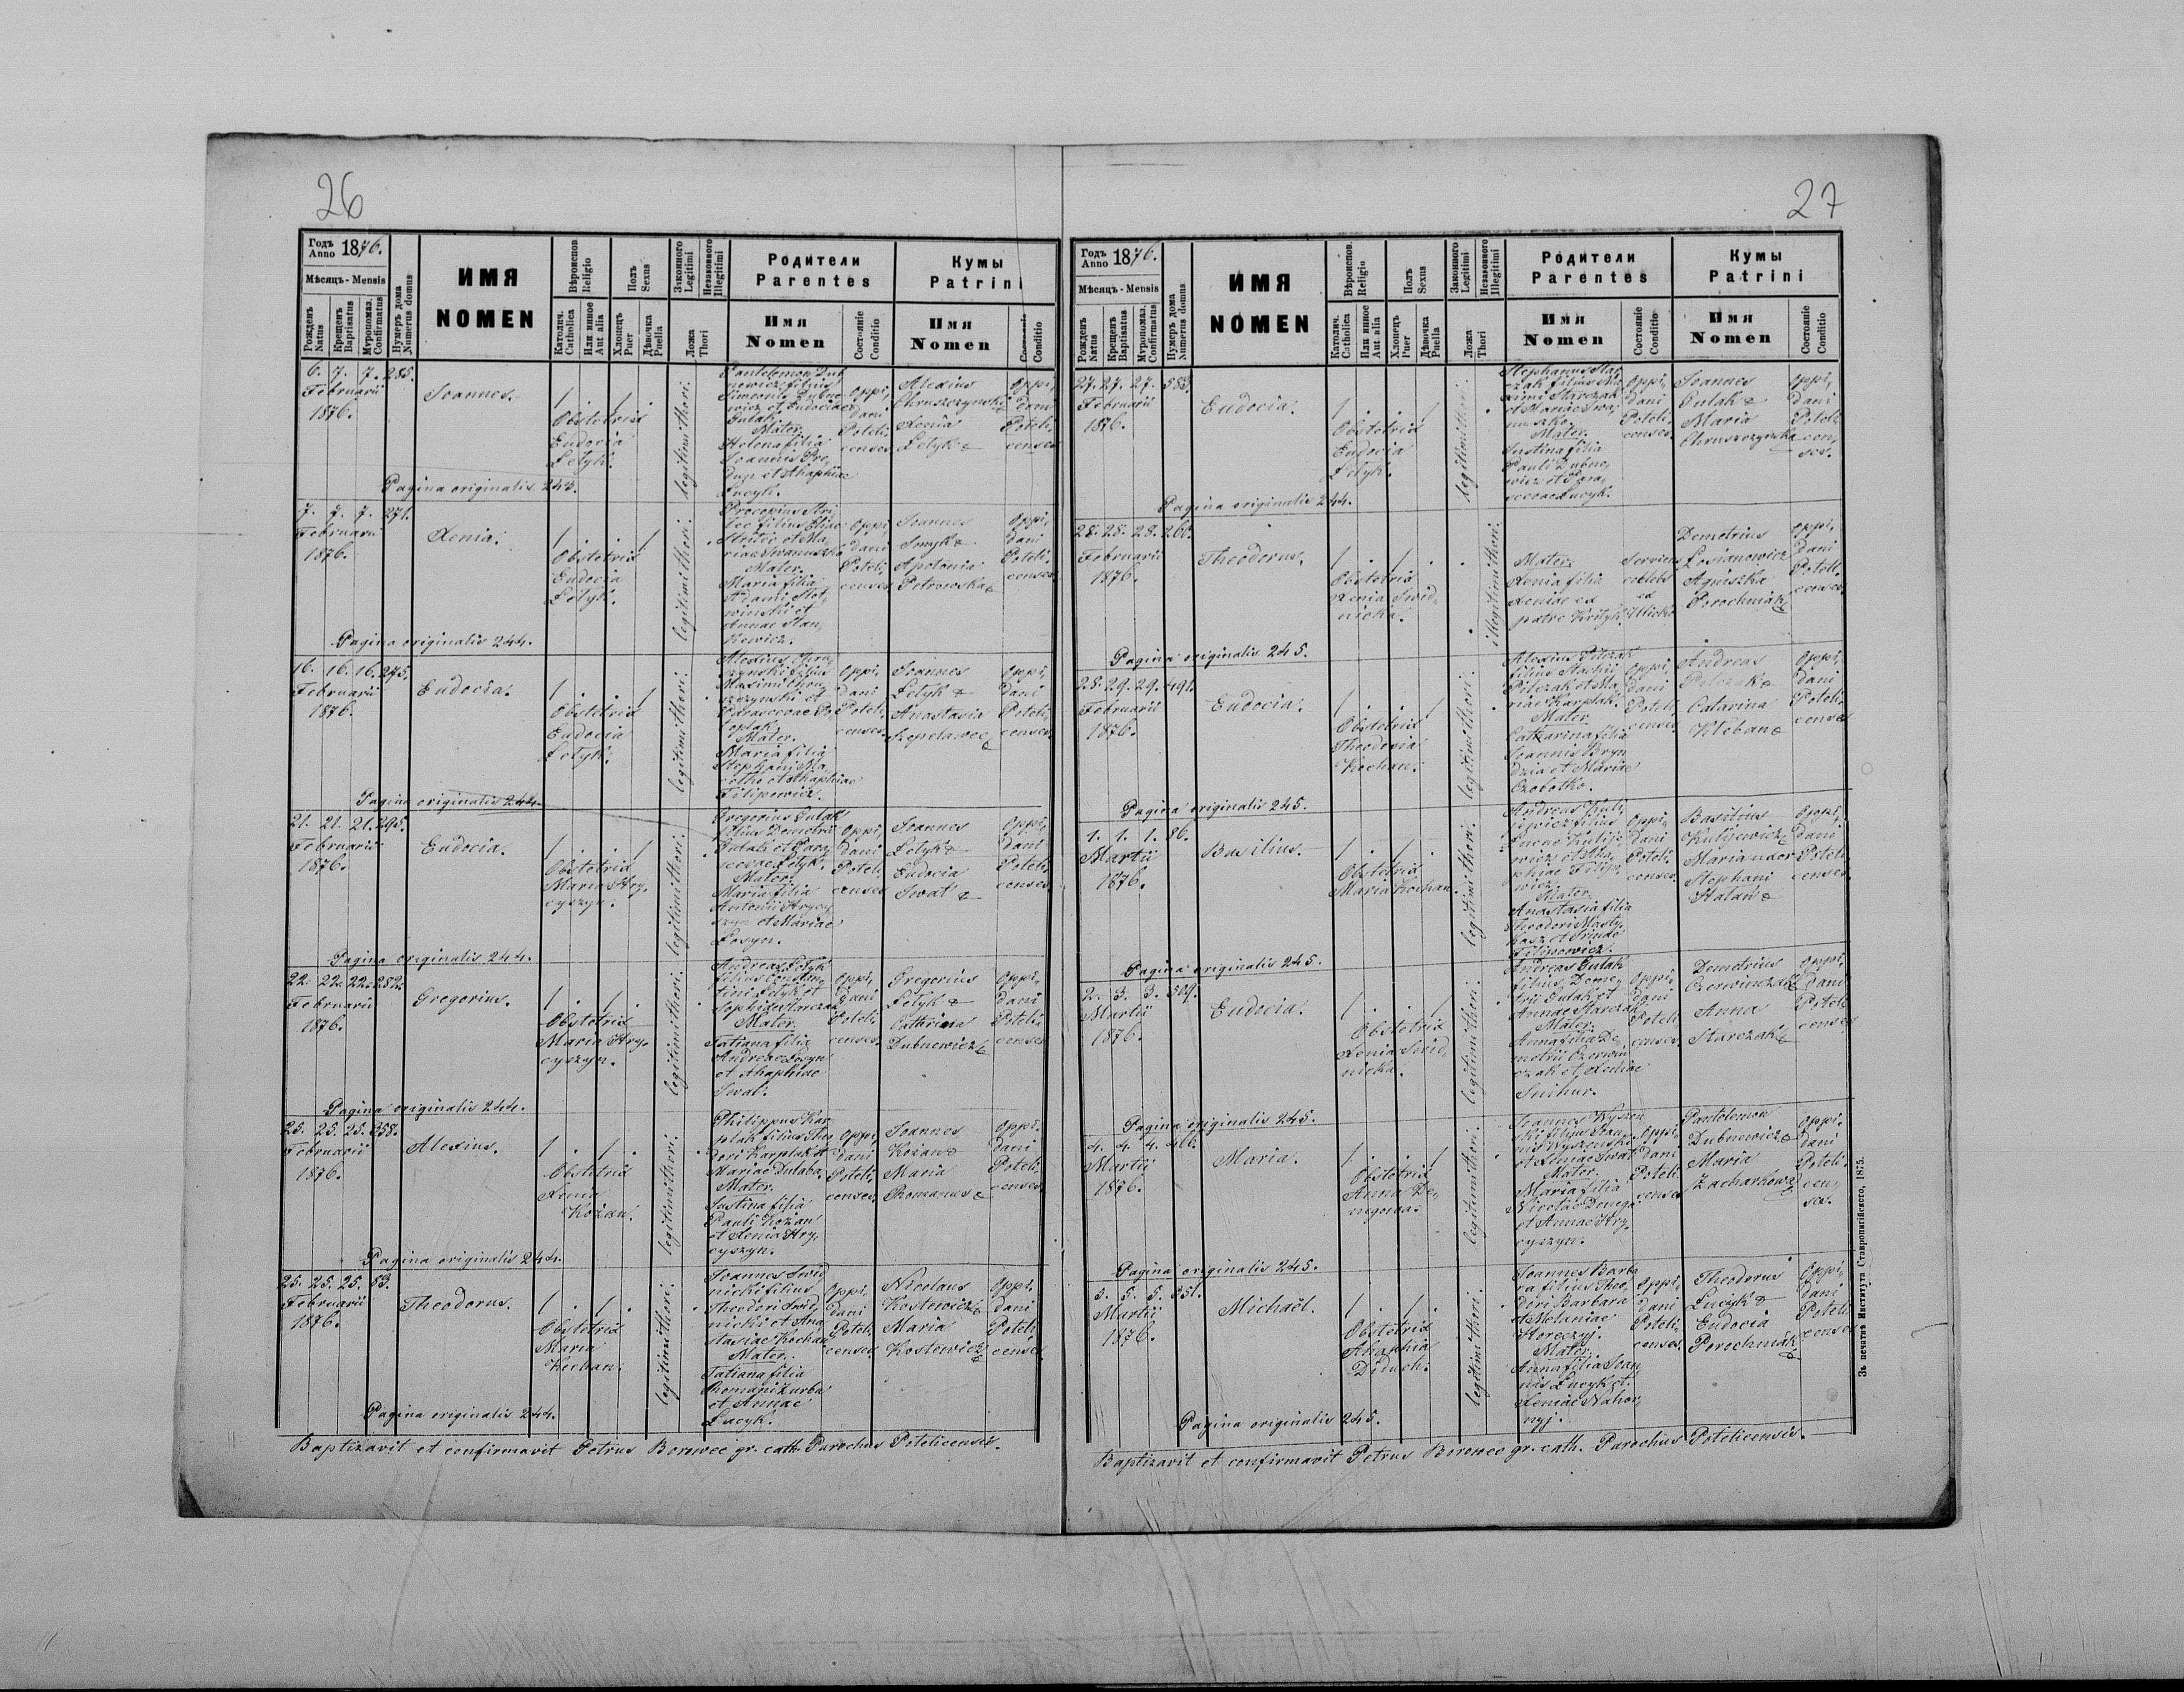 26
Годъ Anno 1876.
Мѣсяцъ - Mensis
Рожденъ Natus
Крещенъ Baptisatus
Муропомаз. Confirmatus
Нумеръ дома Numerus domus
ИМЯ
NOMEN
Вѣроиспов. Religio
Католич. Catholica
Или иное Aut alia
Полъ Sexus
Хлопецъ Puer
Дѣвочка Puella
Законного Legitimi
Незаконного Illegitimi
Ложа Thori
Родители
Parentes
Имя
Nomen
Состояніе
Conditio
Кумы
Patrini
Имя
Nomen
Состояніе
Conditio
6. 7. 7. 285.
Februarii
1876.
Joannes.
1 . 1 .
Obstetrix
Eudocia
Letyk.
legitimi thori.
Pantelemon Dub
newicz filius
Simeonis Dubne
wicz et Eudociae
Gulak.
Mater.
Helena filia
Joannis
et Ahaphiae
Lucyk.
Oppi,
dani
Poteli,
censes
Alexius
Chruszczynski &
Xenia
Letyk &
Oppi,
dani
Poteli,
censes
Pagina originalis 243.
7. 7. 7. 271.
Februarii
1876.
Xenia.
1 . . 1
Obstetrix
Eudocia
Letyk.
legitimi thori.
Procopius Stri
tec filius
Stritec et Ma,
riae Iwanuszko
Mater.
Maria filia
Adami Slot,
winski et
Annae Stan,
kewicz.
Oppi,
dani
Poteli,
censes
Joannes
Smyk &
Apolonia
Petrowska &
Oppi,
dani
Poteli,
censes
Pagina originalis 244.
16. 16. 16. 275.
Februarii
1876.
Eudocia.
1 . . 1
Obstetrix
Eudocia
Letyk.
legitimi thori.
Alexius Chru,
szczynski filius
Maximi Chru
szczynski et
Parascevae
Mater.
Maria filia
Stephani Ma,
et Ahaphiae
Filipowicz.
Oppi,
dani
Poteli,
censes
Joannes
Letyk &
Anastasia
Szpelawec &
Oppi,
dani
Poteli,
censes
Pagina originalis 244.
21. 21. 21. 295.
Februarii
1876.
Eudocia.
1 . . 1
Obstetrix
Maria Hry,
cyszyn.
legitimi thori.
Gregorius Gulak
filius Demetrii
Gulak et Para,
scevae Letyk.
Mater.
Maria filia
Antonii Hrycy
szyn et Mariae
Losyn.
Oppi,
dani
Poteli,
censes
Joannes
Letyk &
Eudocia
Swat &
Oppi,
dani
Poteli,
censes
Pagina originalis 244.
22. 22. 22. 282.
Februarii
1876.
Gregorius.
1 . 1 .
Obstetrix
Maria Hry,
cyszyn.
legitimi thori.
Andreas Letyk
filius Constan,
tini Letyk et
Sophiae Starczak
Mater.
Tatiana filia
Andreae Losyn
et Ahaphiae
Swat.
Oppi,
dani
Poteli,
censes.
Gregorius
Letyk &
Cathrina
Dubnewicz &
Oppi,
dani
Poteli,
censes
Pagina originalis 244.
25. 25. 25. 358.
Februarii
1876.
Alexius.
1 . 1 .
Obstetrix
Xenia
Kozan.
legitimi thori.
Philippus Kar
plak filius Theo
dori Karplak et
Mariae Dutaba.
Mater.
Justina filia
Pauli Kozan
et Xenia Hry,
cyszyn.
Oppi,
dani
Poteli,
censes.
Joannes
Kozan &
Maria
Romanus &
Oppi,
dani
Poteli,
censes.
Pagina originalis 244.
25. 25. 25. 53.
Februarii
1876.
Theodorus.
1 . 1 .
Obstetrix
Maria
Kochan.
legitimi thori.
Joannes Swid
nicki filius
Theodori Swid,
nicki et Ana
stasiae Kochan
Mater.
Tatiana filia
Romani Zurba
et Annae
Lucyk.
Oppi,
dani
Poteli,
censes.
Nicolaus
Kostewicz &
Maria
Kostewicz &
Oppi,
dani
Poteli,
censes
Pagina originalis 244.
Baptizavit et confirmavit Petrus Borowec gr. cath. Parochus Potelicensis.
27
Годъ Anno 1876.
Мѣсяцъ - Mensis
Рожденъ Natus
Крещенъ Baptisatus
Муропомаз. Confirmatus
Нумеръ дома Numerus domus
ИМЯ
NOMEN
Вѣроиспов. Religio
Католич. Catholica
Или иное Aut alia
Полъ Sexus
Хлопецъ Puer
Дѣвочка Puella
Законного Legitimi
Незаконного Illegitimi
Ложа Thori
Родители
Parentes
Имя
Nomen
Состояніе
Conditio
Кумы
Patrini
Имя
Nomen
Состояніе
Conditio
27. 27. 27. 583.
Februarii
1876.
Eudocia.
1 . . 1
Obstetrix
Eudocia
Letyk.
legitimi thori.
Stephanus Star
czak filius Ma
ximi Starczak
et Mariae Iwa,
nuszko.
Mater.
Justina filia
Pauli Dubne,
wicz et Para,
scevae Lucyk.
Oppi,
dani
Poteli,
censes.
Joannes
Gulak &
Maria
Chruszczynska
Oppi,
dani
Poteli,
cen,
ses.
Pagina originalis 244.
28. 28. 28. 260.
Februarii
1876.
Theodorus.
1 . 1 .
Obstetrix
Xenia Swid,
nicka.
illegitimi thori.
Mater.
Xenia filia
Xeniae ex
patre Krityk.
Serviens
caelebs
ex
Demetrius
Losianowicz
Agniszka
Porochniak &
Oppi,
dani
Poteli,
censes
Pagina originalis 245.
28. 29. 29. 491.
Februarii
1876.
Eudocia.
1 . . 1
Obstetrix
Theodosia
Kochan.
legitimi thori.
Alexius Pilczak
filius Stachii
Pilczak et Ma,
riae Karplak.
Mater
Catharina filia
Joannis Bryn
dzia et Mariae
Czobotko.
Oppi,
dani
Poteli,
censes
Andreas
Pilczak &
Catarina
Kleban &
Oppi,
dani
Poteli,
censes
Pagina originalis 245.
1. 1. 1. 86.
Martii
1876.
Basilius.
1 . 1 .
Obstetrix
Maria Kochan.
legitimi thori.
Andreas Kuli,
jewicz filius
Lucae Kulije,
wicz et Aha,
phiae Filipo
wicz.
Mater
Anastasia filia
Theodori Masty,
kasz et Irinae
Filipowicz.
Oppi,
dani
Poteli,
censes.
Basilius
Kulijewicz &
Maria uxor
Stephani
Halan &
Oppi,
dani
Poteli,
censes.
Pagina originalis 245.
2. 3. 3. 509.
Martii
1876.
Eudocia.
1 . . 1
Obstetrix
Xenia Swid,
nicka.
legitimi thori.
Andreas Gulak
filius Deme,
trii Gulak et
Annae Starczak
Mater.
Anna filia De,
metrii Czerwin
czak et Xeniae
Snihur.
Oppi,
dani
Poteli,
censes.
Demetrius
Czerwinczak &
Anna
Starczak &
Oppi,
dani
Poteli,
censes
Pagina originalis 245.
4. 4. 4. 406.
Martii
1876.
Maria.
1 . . 1
Obstetrix
Anna De,
negowa.
legitimi thori.
Joannes Wyszen
ski filius Joan,
nis Wyszenski
et Xeniae Swat
Mater.
Maria filia
Nicetae Denega
et Annae Hry,
cyszyn.
Oppi,
dani
Poteli,
censes
Pantelemon
Dubnewicz &
Maria
Zacharkowa &
Oppi,
dani
Poteli,
cen,
ses.
Pagina originalis 245.
5. 5. 5. 351.
Martii
1876.
Michaël.
1 . 1 .
Obstetrix
Ahaphia
Diduch.
legitimi thori.
Joannes Barba
ra filius Theo,
dori Barbara
et Melaniae
Horeczyj.
Mater.
Anna filia Joan,
nis Lucyk et
Xeniae Nahor,
nyj.
Oppi,
dani
Poteli,
censes.
Theodorus
Lucyk &
Eudocia
Porochniak &
Oppi,
dani
Poteli,
censes
Pagina originalis 245.
Baptizavit et confirmavit Petrus Borowec gr. cath. Parochus Potelicensis.
Зъ печатнѣ Института Ставропигійского, 1875.